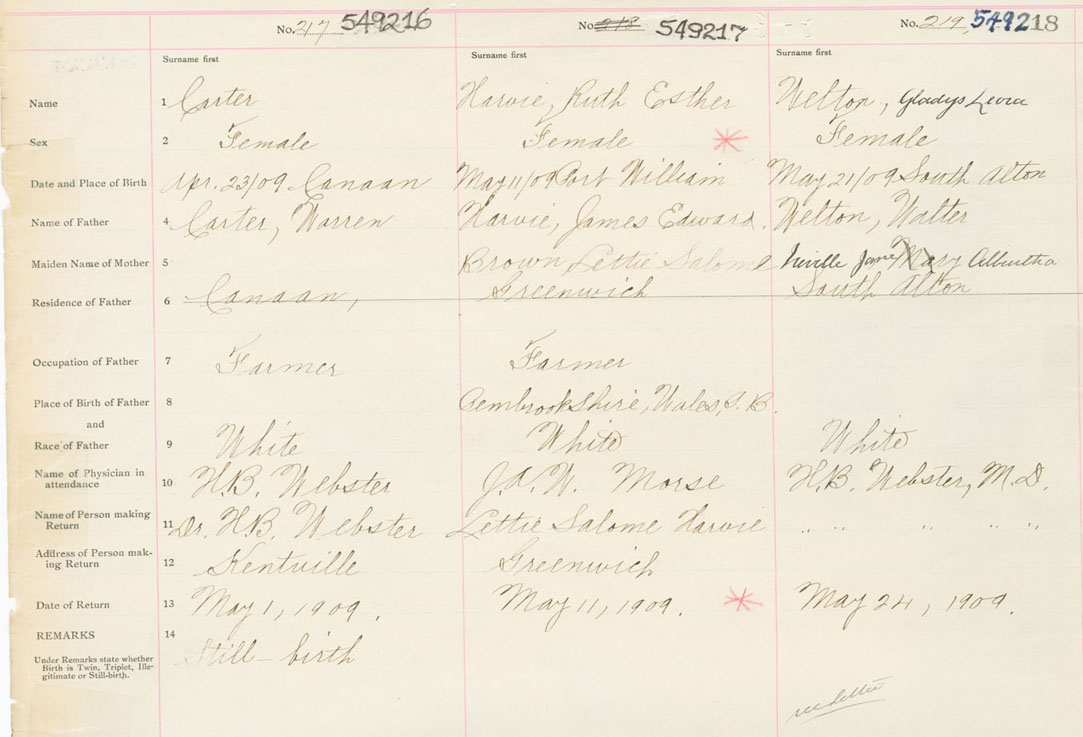 No. 217 549216 No. 218 549217 No. 219 549218
Surname first Surname first Surname first
Name 1 Carter Harvie, Ruth Esther Welton, Gladys Leora
Sex 2 Female Female Female
Date and Place of Birth 3 Apr. 23/09 Canaan May 11/09 Port William May 21/09 South Alton
Name of Father 4 Carter, Warren Harvie, James Edward. Welton, Walter
Maiden Name of Mother 5 Brown Lettie Salome Neville Jane Mary
Residence of Father 6 Canaan, Greenwich South Alton
Occupation of Father 7 Farmer Farmer
Place of Birth of Father 8 Pembrookshire, Wales,
and
Race of Father 9 White White White
Name of Physician in
attendance 10 H.B. Webster J.A.W. Morse H.B. Webster, M.D.
Name of Person making
Return 11 Dr. H.B. Webster Lettie Salome Harvie " " " " "
Address of Person mak-
ing Return 12 Kentville Greenwich
Date of Return 13 May 1, 1909. May 11, 1909. May 24, 1909.
REMARKS 14 Still-birth
Under Remarks state whether
Birth is Twin, Triplet, Ille-
gitimate or Still-birth.